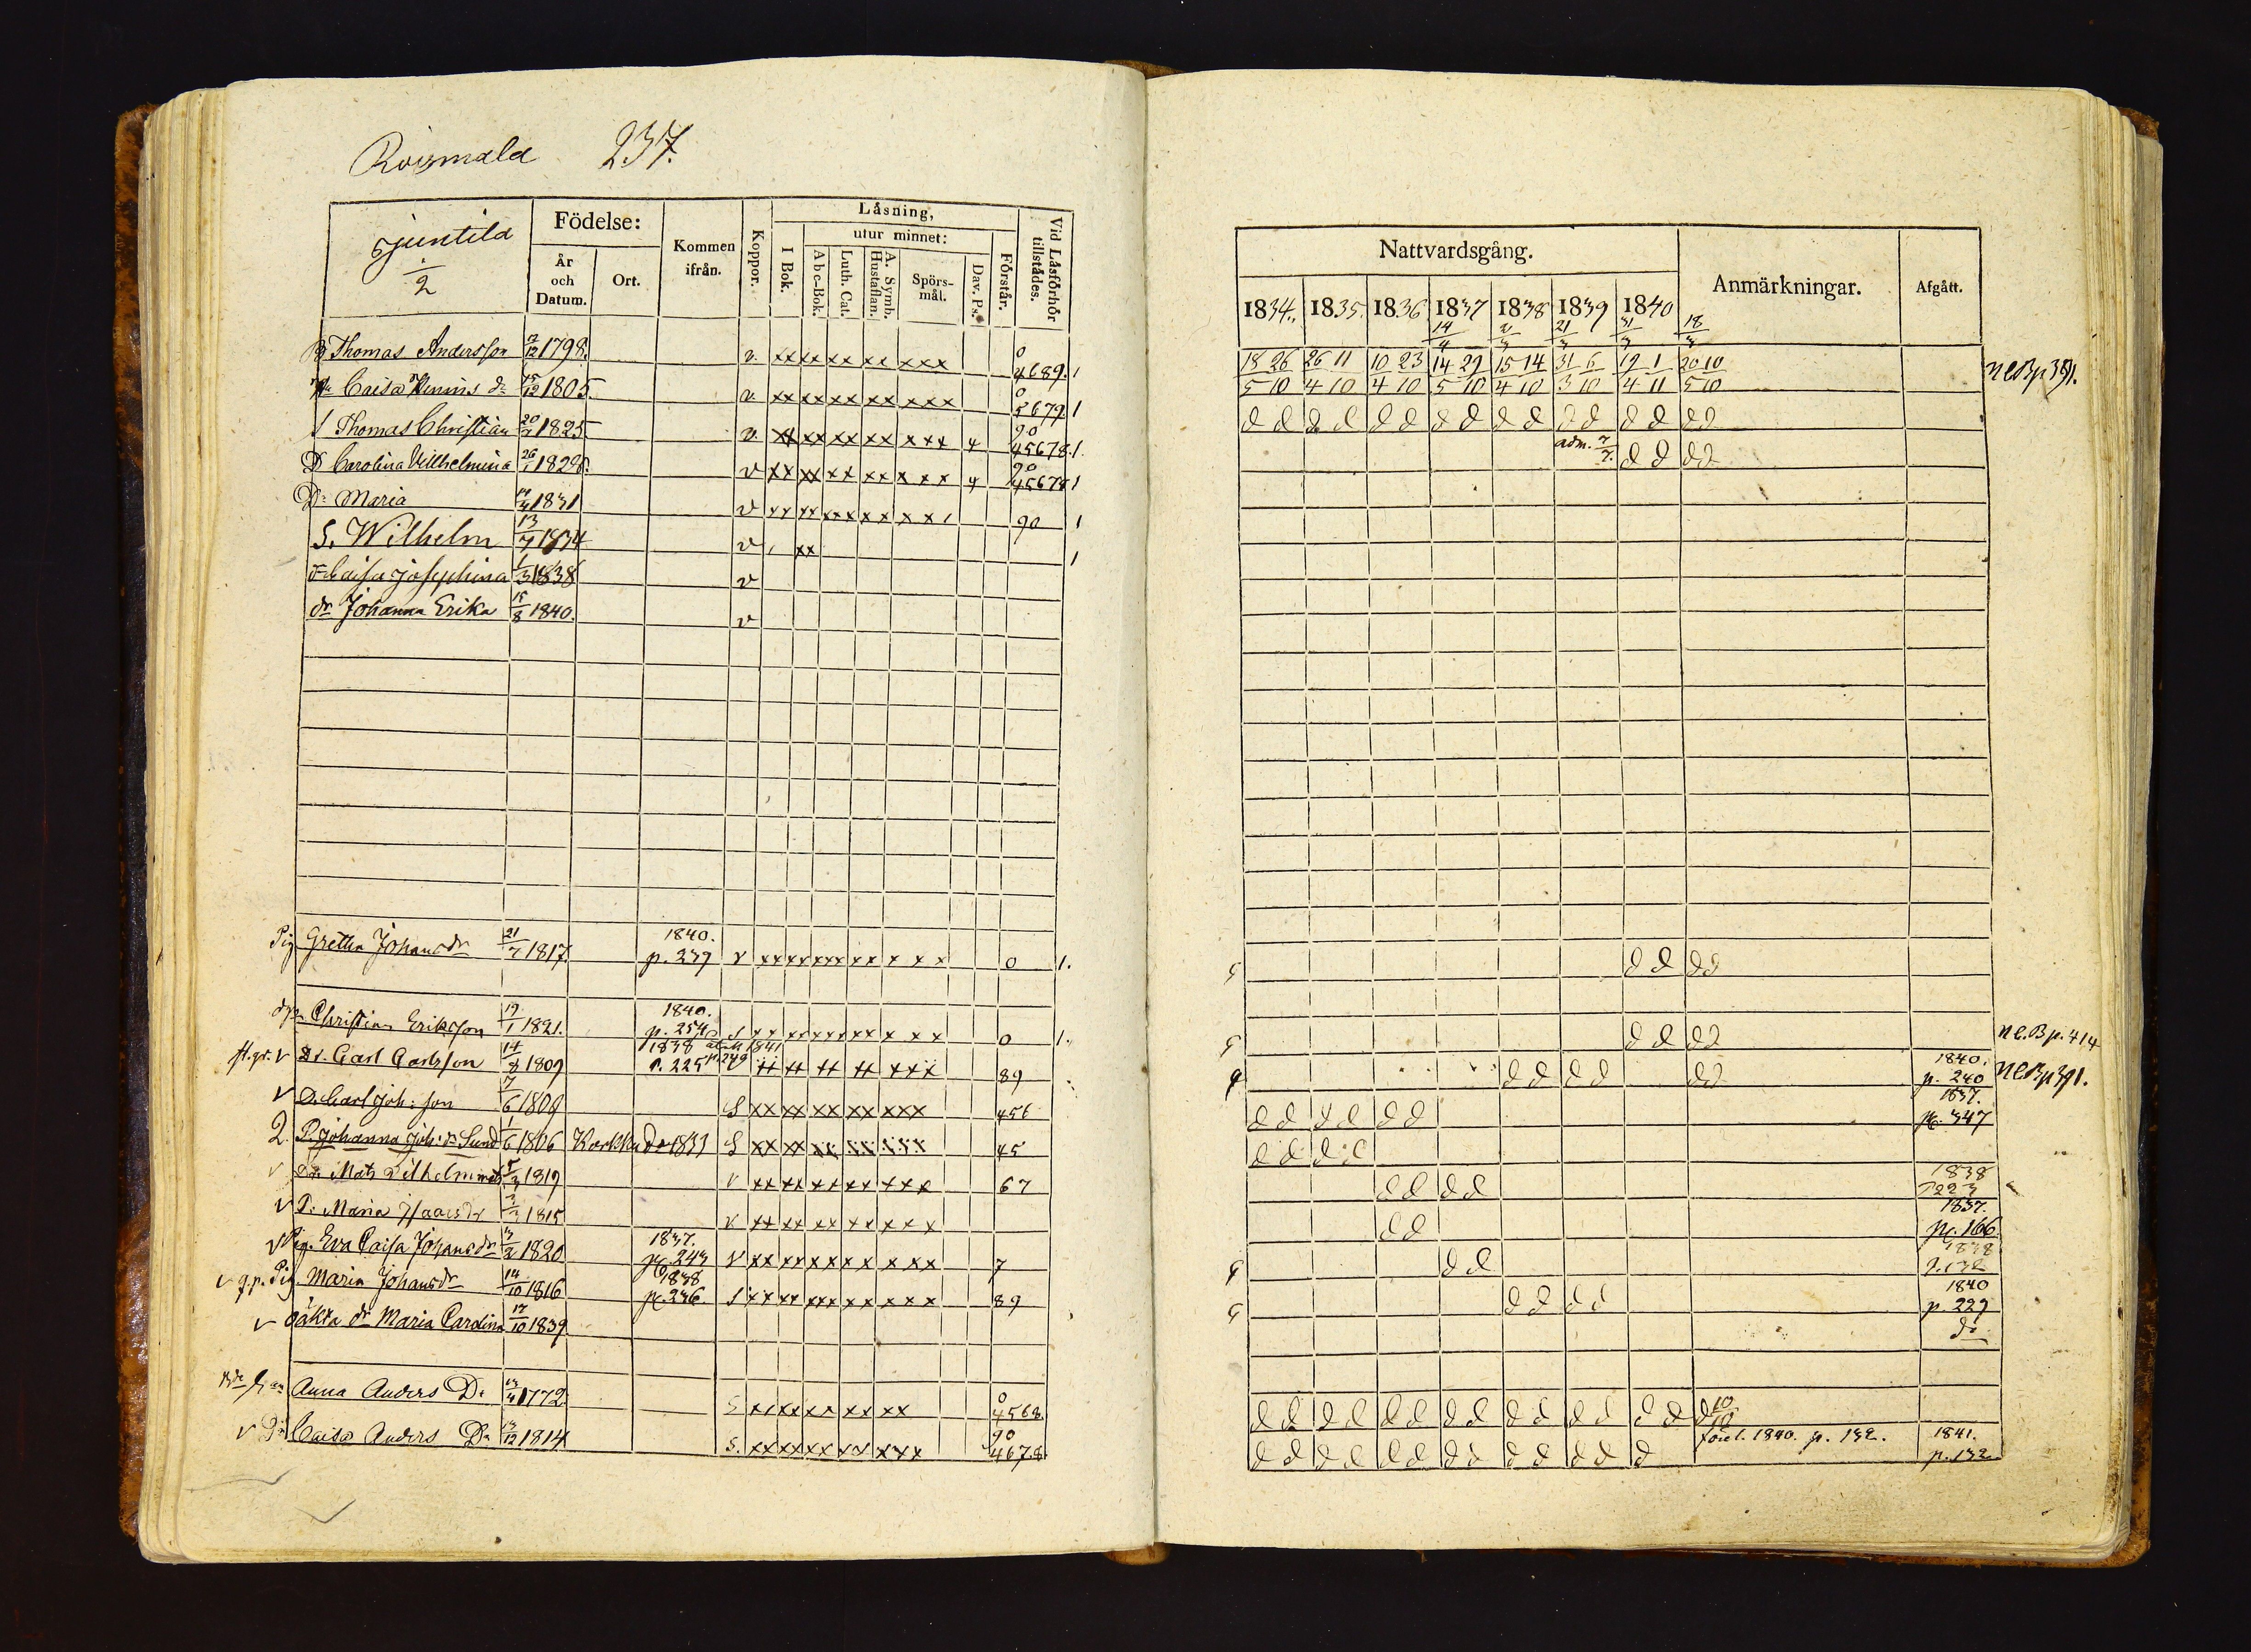 Roismala 237.
Sjuntila
2
Födelse:
År
och
Datum.
Ort.
Kommen
ifrån.
Koppor.
Läsning,
I Bok.
utur minnet:
Abc-Bok.
Luth. Cat.
A. Symb.
Hustaflan.
Spörs-
mål.
Dav. Ps.
Förstår.
Vid Läsförhör
tillstädes.
B Thomas Andersson 1798. v. xx xx xx xx xxx 0 4689. 1
Caisa d:r 15/12 1805. v. xx xx xx xx xxx 0 5679 1
S Thomas Christian 20/7 1825 v. xx xx xx xx xxx 4 90 45678. 1.
D Carolina Vilhelmina 26/1 1828. v xx xx xx xx xxx 4 90 45678 1
D:r Maria 1831 v xx xx xxx xx xx/ 90 1
S. Wilhelm 13/7 1834 v / xx 1
d:r Caisa Josephina 1/3 1838 v
dr Johanna Erika 15/8 1840. v
Pig Gretha Johansdr 21/7 1817. 1840. p. 239 v xx xx xxx xx xxx 0 1.
Christian Eriksson 19/1 1821. 1840. p. 254 s xx xx xxx xx xxx 0 1.
v Dr. Carl Carlsson 14/8 1809 1838 p. 225 1841 p. 249 xx xx xx xx xxx 89
v D. Carl Joh: son 7/6 1808 S xx xx xx xx xxx 456
2. P. Johanna Joh: d:r Sund 1/6 1806 Karkku 1833 S xx xx xx xx xxx 45
v Dr. Mats Vilhelm 5/3 1819 v xx xx xx xx xxx 67
v P. Maria Isaacsdr 1815 v xx xx xx xx xxx
v Pig. Eva Caisa Johansdr 1820 1837. p. 243 v xx xx xx xx xxx 7
v Pig Maria Johansdr 14/10 1816 1838 p. 236. s xx xx xxx xx xxx 89
v oäkta dr Maria Carolina 17/10 1839
Anna Anders D:r 1772. S xx xx xx xx xx 0 4568.
v Caisa Anders D:r 13/12 1814 S. xx xx xx xx xxx 90 4678.
Nattvardsgång.
Anmärkningar.
Afgått.
1834. 1835. 1836 1837 1838 1839 1840
14/4 21/3 31/3 18/3
18/5 26/10 26/4 11/10 10/4 23/10 14/5 29/10 15/4 14/10 31/3 6/10 19/4 1/11 20/5 10/10
d d d d d d d d d d d d d d d d
adm. 7/7. d d d d
d d d d
d d d d n C. B p. 414
d d d d d d 1840. p. 240
d d d d d d 1837. p. 347
d d d d
d d d d 1838
d d 1837. p. 166
d d 1838 p. 132
d d d d 1840 p. 229
d:o
d d d d d d d d d d d d d d d 10/10
d d d d d d d d d d d d d 1840. p. 132. 1841. p. 132